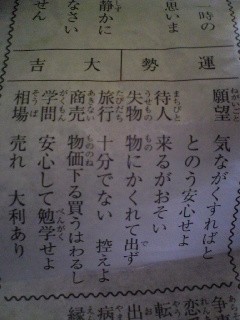 一時の
思いま
静かに
なさい
せん
運勢大吉
願望 気ながくすればと
とのう安心せよ
待人 来るがおそい
失物 物にかくれて出ず
旅行 十分でない 控えよ
商売 物価下る買うはわるし
学問 安心して勉学せよ
相場 売れ 大利あり
争
恋
転
出
病
縁